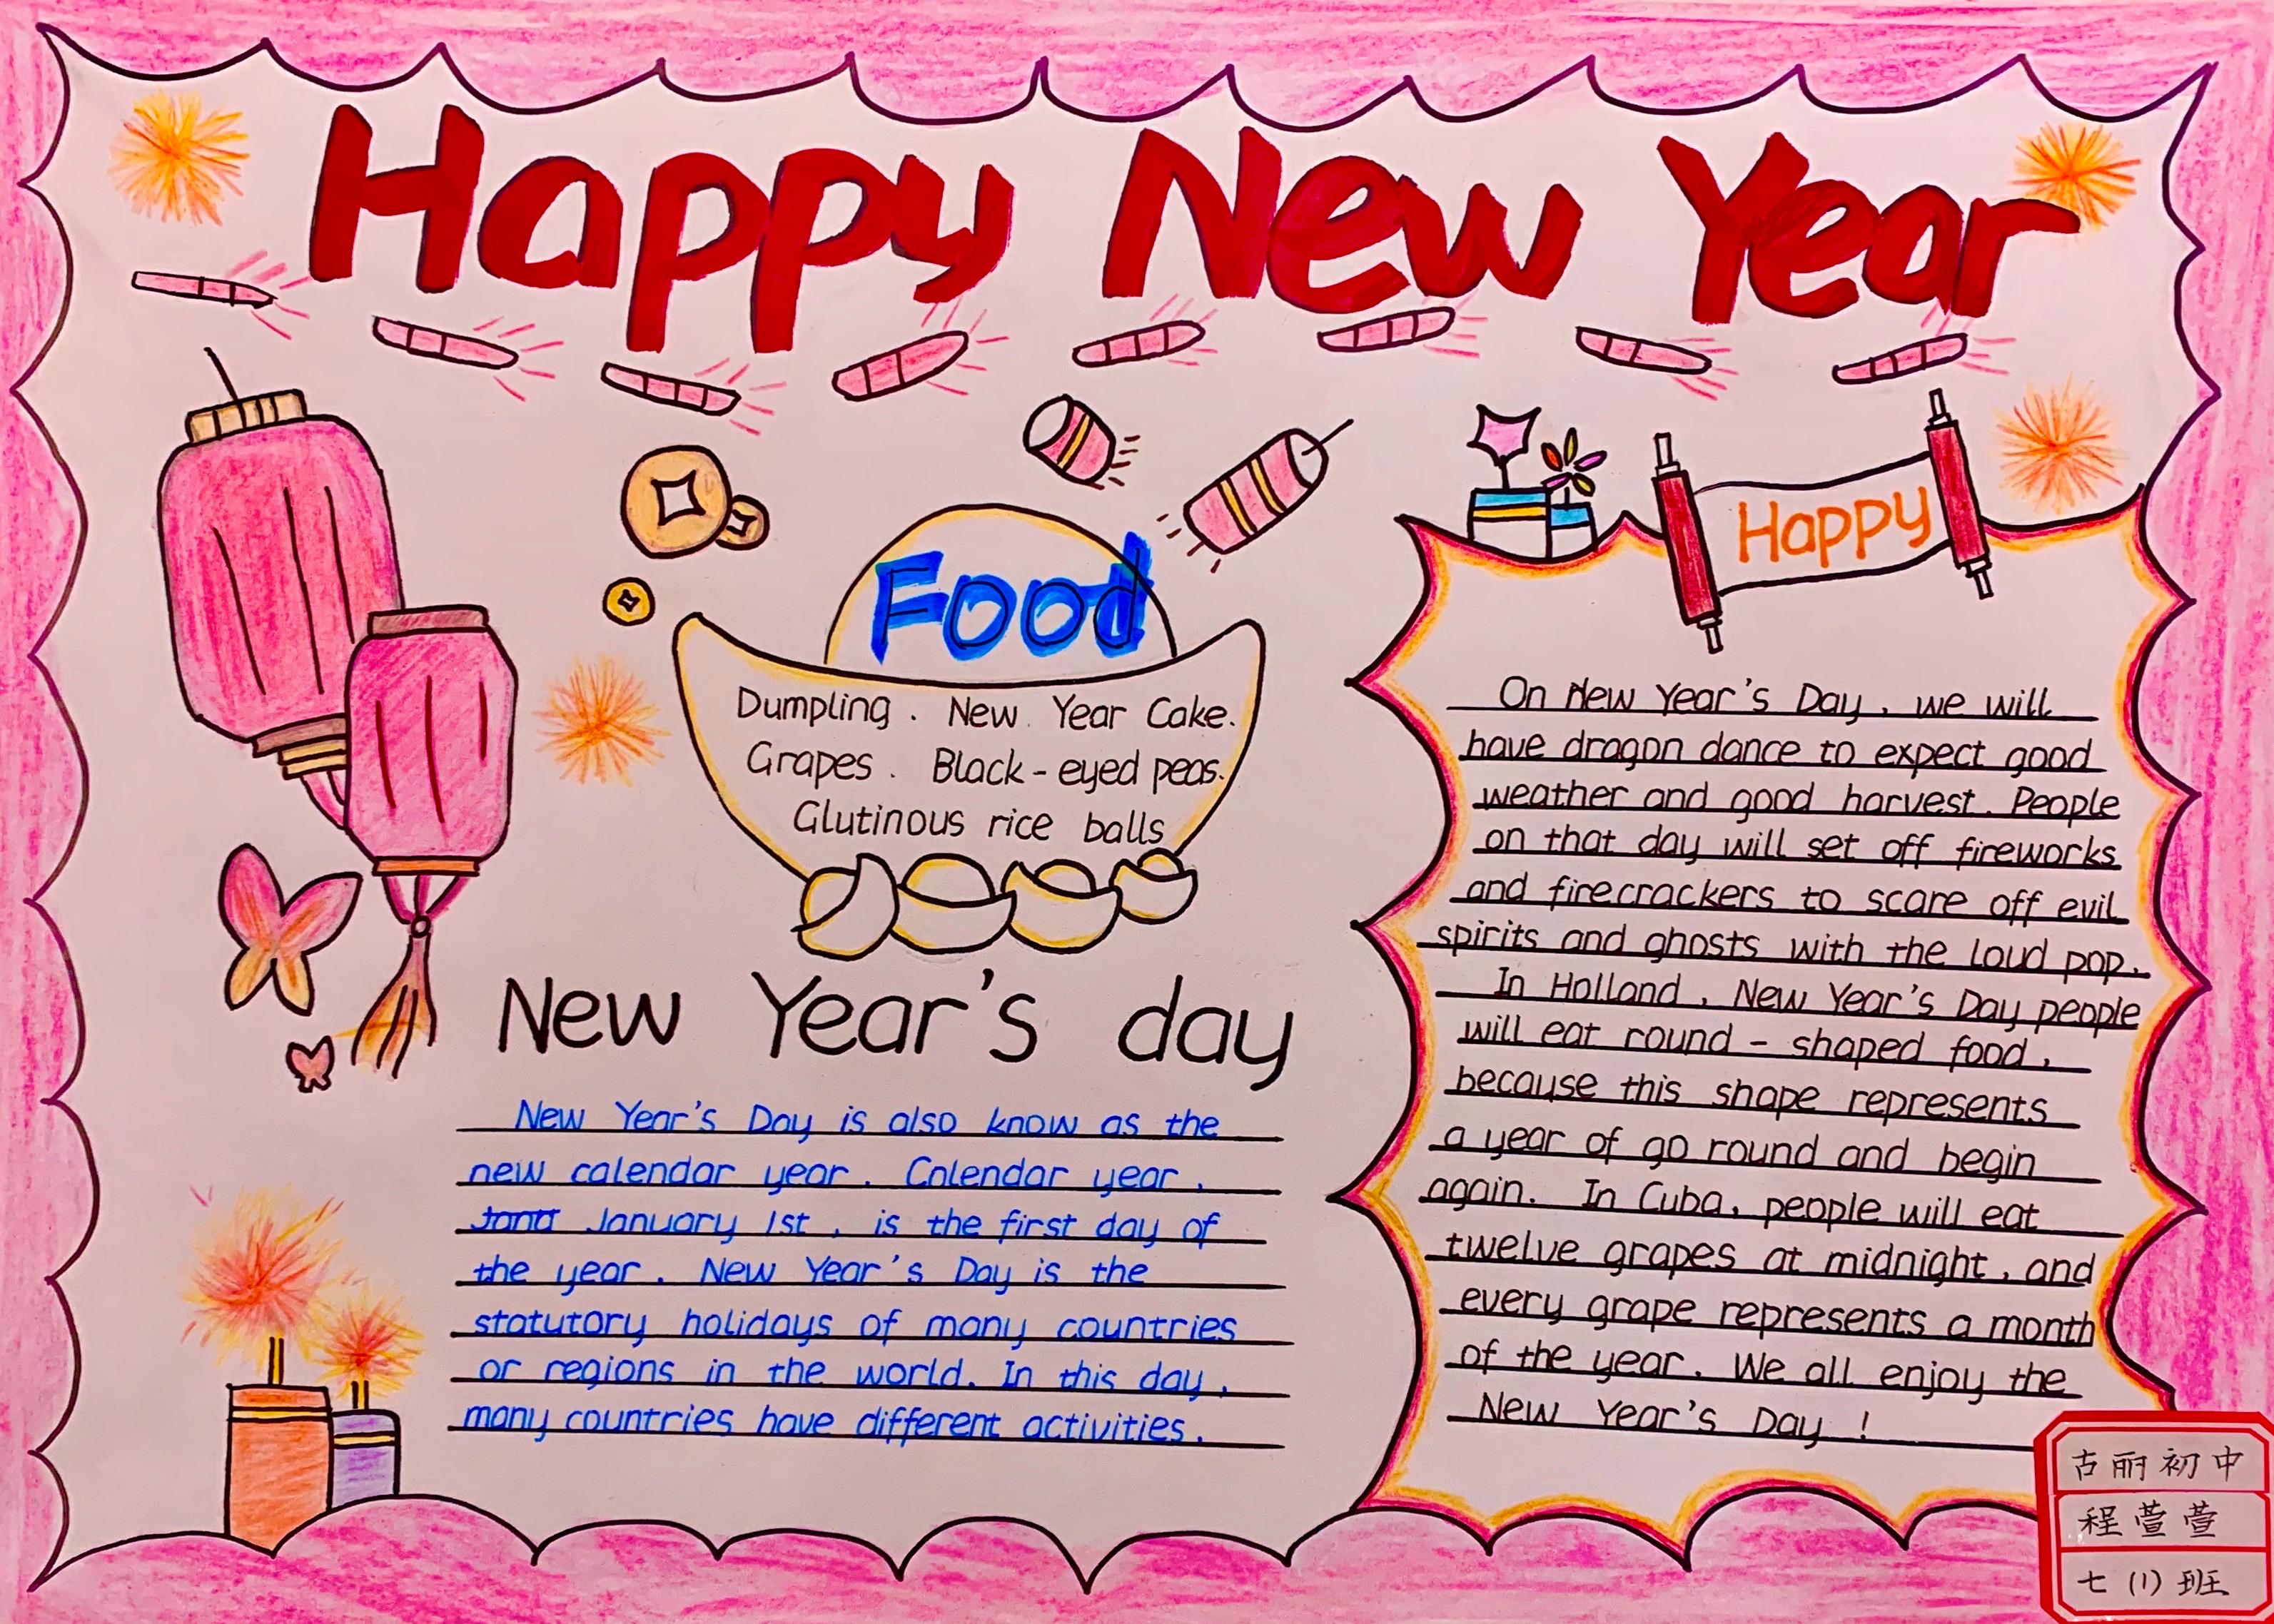 Happy New Year
Food
Dumpling. New Year Cake.
Grapes. Black-eyed peas.
Glutinous rice balls
New Year's day
New Year's Day is also know as the
new calendar year. Calendar year,
January 1st, is the first day of
the year. New Year's Day is the
statutory holidays of many countries
or regions in the world. In this day,
many countries have different activities.
Happy
On New Year's Day, we will
have dragon dance to expect good
weather and good harvest. People
on that day will set off fireworks
and firecrackers to scare off evil
spirits and ghosts with the loud pop.
In Holland, New Year's Day people
will eat round-shaped food,
because this shape represents
a year of go round and begin
again. In Cuba, people will eat
twelve grapes at midnight, and
every grape represents a month
of the year. We all enjoy the
New Year's Day!
古丽初中
程萱萱
七(1)班